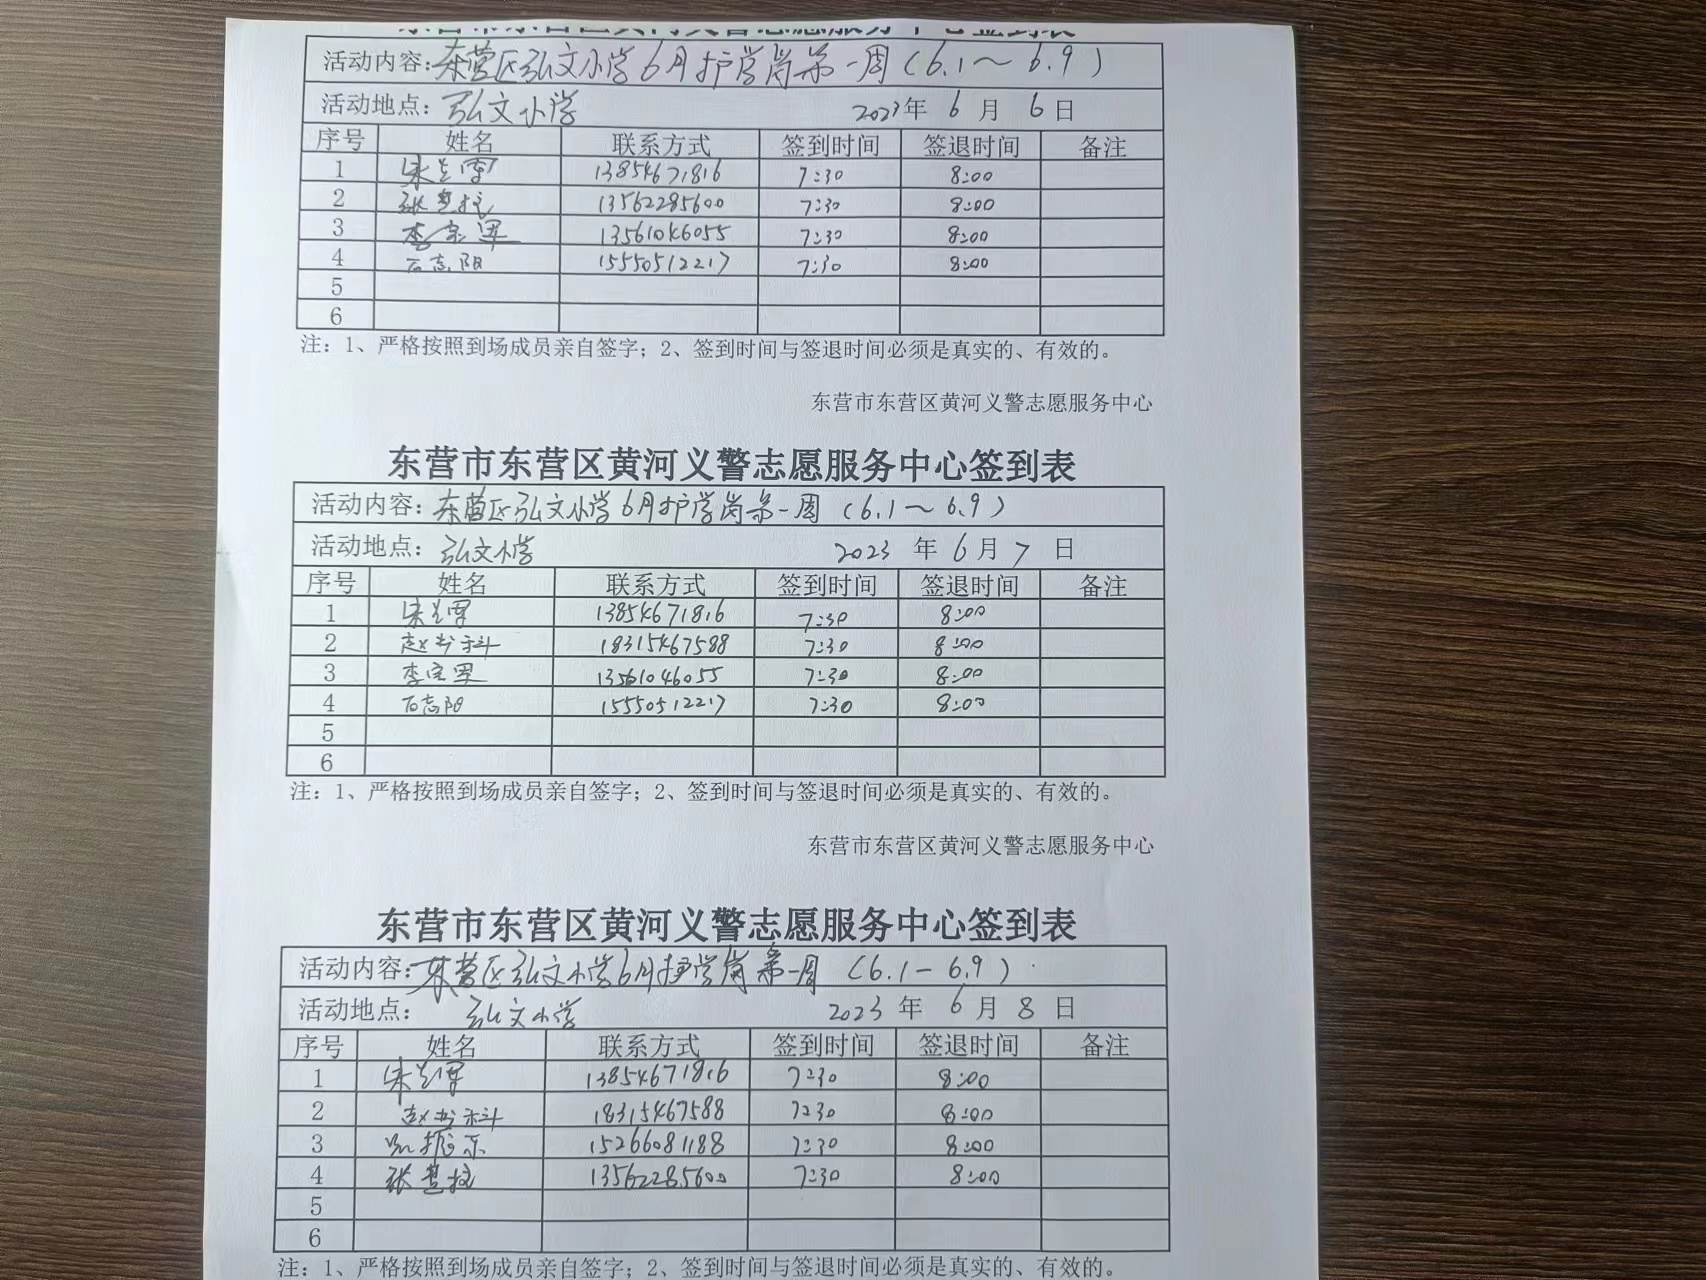 东营市东营区黄河义警志愿服务中心签到表
活动内容:东营区弘文小学6月护学岗第一周(6.1～6.9)
活动地点:弘文小学 2023年 6 月 6 日
序号 姓名 联系方式 签到时间 签退时间 备注
1 13854671816 7:30 8:00
2 13562285600 7:30 8:00
3 李宗军 13561046055 7:30 8:00
4 石志阳 15550512217 7:30 8:00
5
6
注：1、严格按照到场成员亲自签字；2、签到时间与签退时间必须是真实的、有效的。
东营市东营区黄河义警志愿服务中心
东营市东营区黄河义警志愿服务中心签到表
活动内容:东营区弘文小学6月护学岗第一周(6.1～6.9)
活动地点:弘文小学 2023 年 6 月 7 日
序号 姓名 联系方式 签到时间 签退时间 备注
1 13854671816 7:30 8:00
2 赵书科 18315467588 7:30 8:00
3 李宗军 13561046055 7:30 8:00
4 石志阳 15550512217 7:30 8:00
5
6
注：1、严格按照到场成员亲自签字；2、签到时间与签退时间必须是真实的、有效的。
东营市东营区黄河义警志愿服务中心
东营市东营区黄河义警志愿服务中心签到表
活动内容:东营区弘文小学6月护学岗第一周(6.1-6.9)
活动地点: 弘文小学 2023 年 6 月 8 日
序号 姓名 联系方式 签到时间 签退时间 备注
1 13854671816 7:30 8:00
2 赵书科 18315467588 7:30 8:00
3 15266081188 7:30 8:00
4 13562285600 7:30 8:00
5
6
注：1、严格按照到场成员亲自签字；2、签到时间与签退时间必须是真实的、有效的。